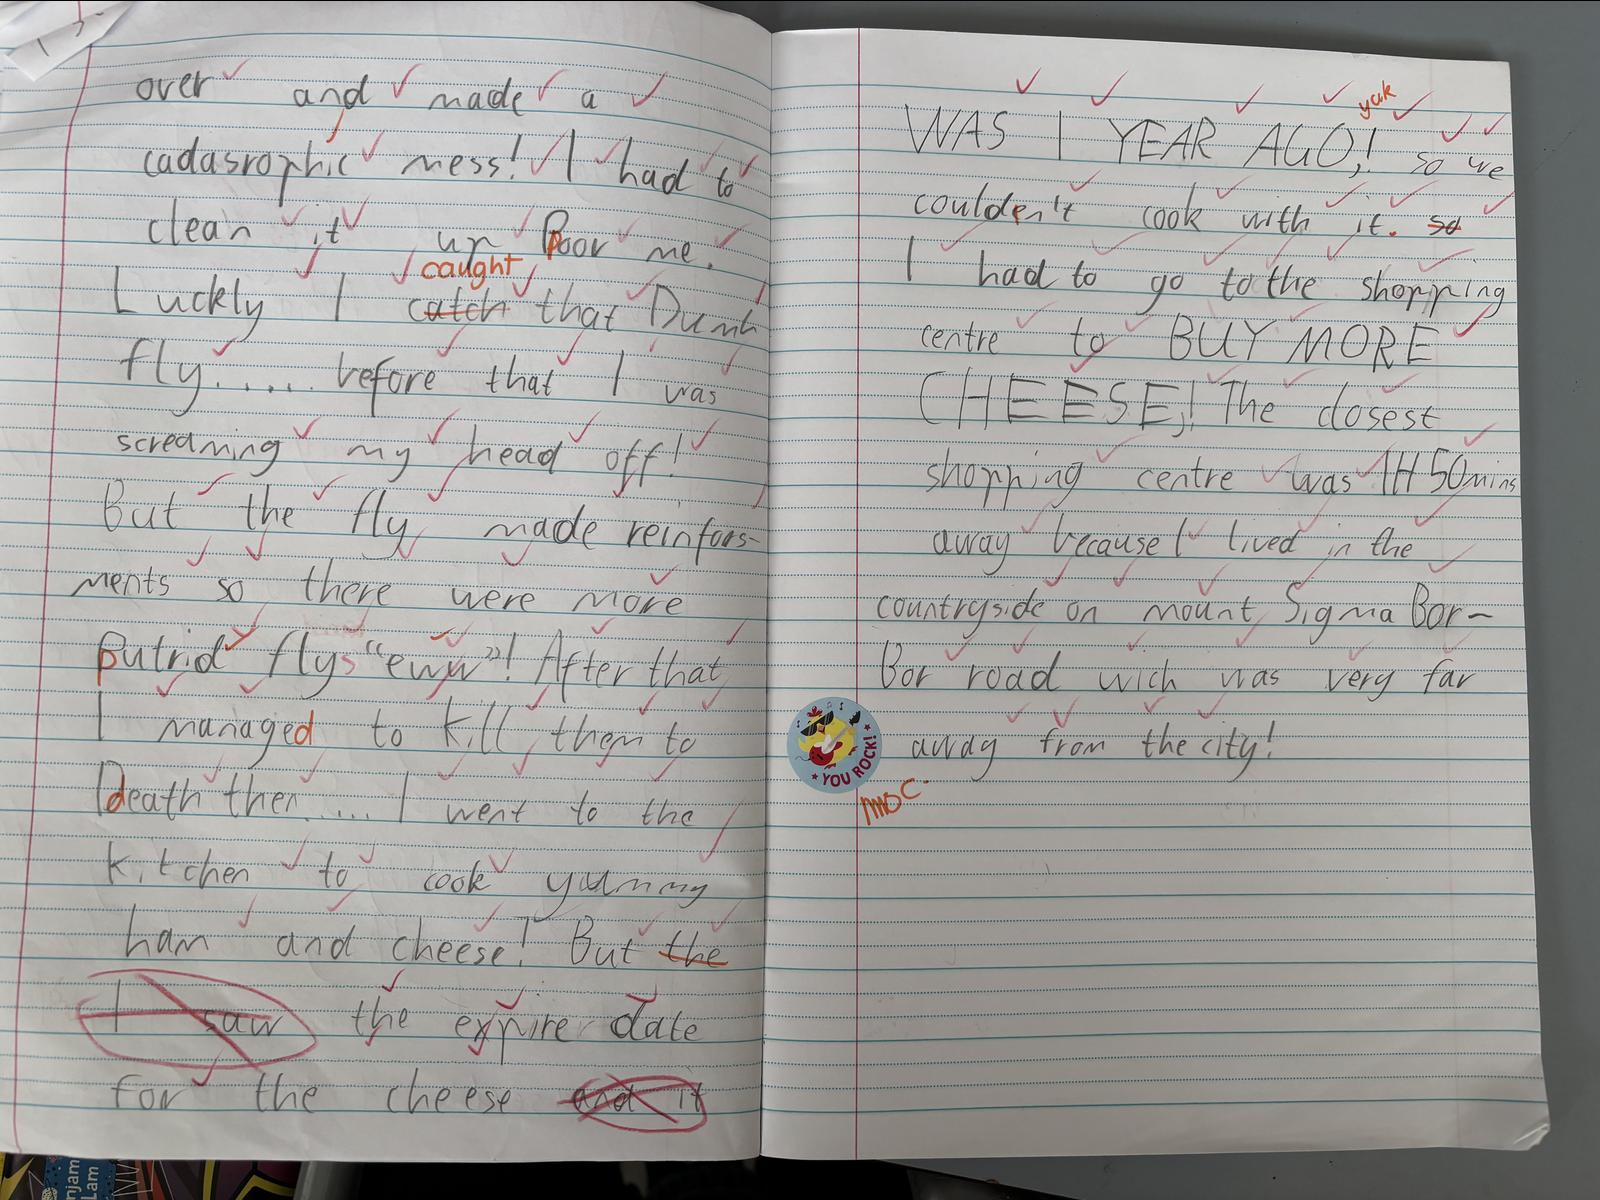 over and made a
cadasrophic mess! I had to
clean it up Poor me.
caught
Luckly I catch that Dumb
fly..... before that I was
screaming my head off!
But the fly made reinfors-
ments so there were more
putrid flys "eww"! After that
I managed to kill them to
death then..... I went to the
kitchen to cook yummy
ham and cheese! But the
I saw the expire date
for the cheese and it
yuk
WAS 1 YEAR AGO,! so we
couldn't cook with it. so
I had to go to the shopping
centre to BUY MORE
CHEESE,! The closest
shopping centre was 1H 50mins
away because I lived in the
countryside on mount Sigma Bor-
Bor road wich was very far
away from the city!
YOU ROCK!
njam
Lam